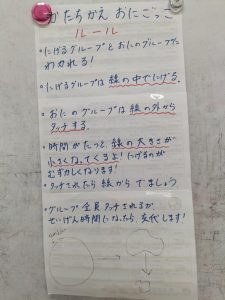 かたちかえ おにごっこ
ルール
・にげるグループと おにのグループに
わかれる!
・にげるグループは 線の中でにげる。
・おにのグループは 線の外から
タッチする。
・時間がたつと、線の大きさが
小さくなってくるよ! にげるのが
むずかしくなります!
・タッチされたら 線から でましょう
・グループ 全員 タッチされるか
せいげん時間になったら、交代します!